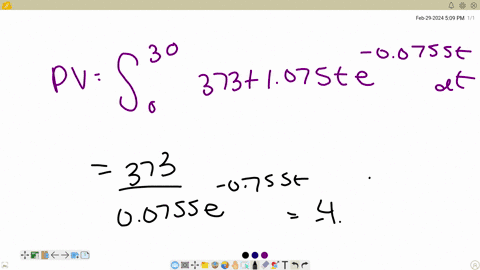 Feb-29-2024 5:09 PM 1/1
PV = ∫₀³⁰ 373+1.075te^-0.0755t dt
= 373/0.0755e^-0.755t = 4.